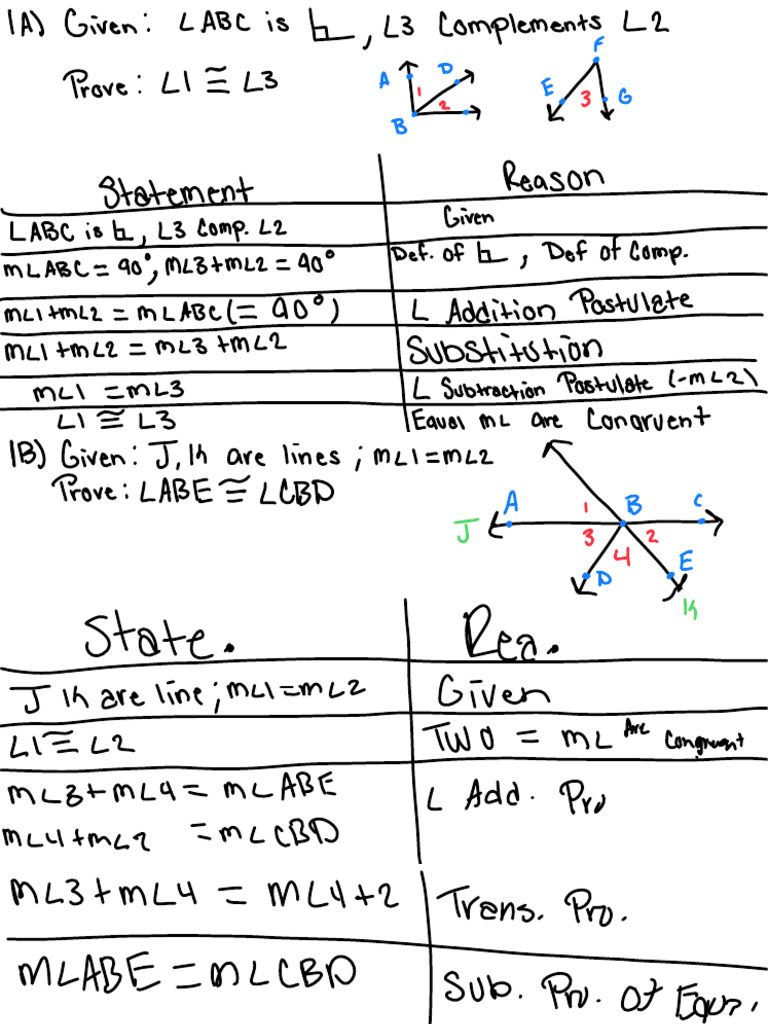 1A) Given: ∠ABC is ⊾, ∠3 Complements ∠2
Prove: ∠1 ≅ ∠3
A D B 1 2
F E 3 G
Statement Reason
∠ABC is ⊾, ∠3 Comp. ∠2 Given
m∠ABC = 90°, m∠3+m∠2 = 90° Def. of ⊾, Def of Comp.
m∠1+m∠2 = m∠ABC (= 90°) ∠ Addition Postulate
m∠1+m∠2 = m∠3+m∠2 Substitution
m∠1 = m∠3 ∠ Subtraction Postulate (-m∠2)
∠1 ≅ ∠3 Equal m∠ are Congruent
1B) Given: J, K are lines; m∠1=m∠2
Prove: ∠ABE ≅ ∠CBD
J A 1 B C
3 4 2
D E
K
State. Rea.
J K are line; m∠1=m∠2 Given
∠1 ≅ ∠2 Two = m∠ Are Congruent
m∠3+m∠4 = m∠ABE ∠ Add. Pro
m∠4+m∠2 = m∠CBD
m∠3+m∠4 = m∠4+2 Trans. Pro.
m∠ABE = m∠CBD Sub. Pro. of Equa.